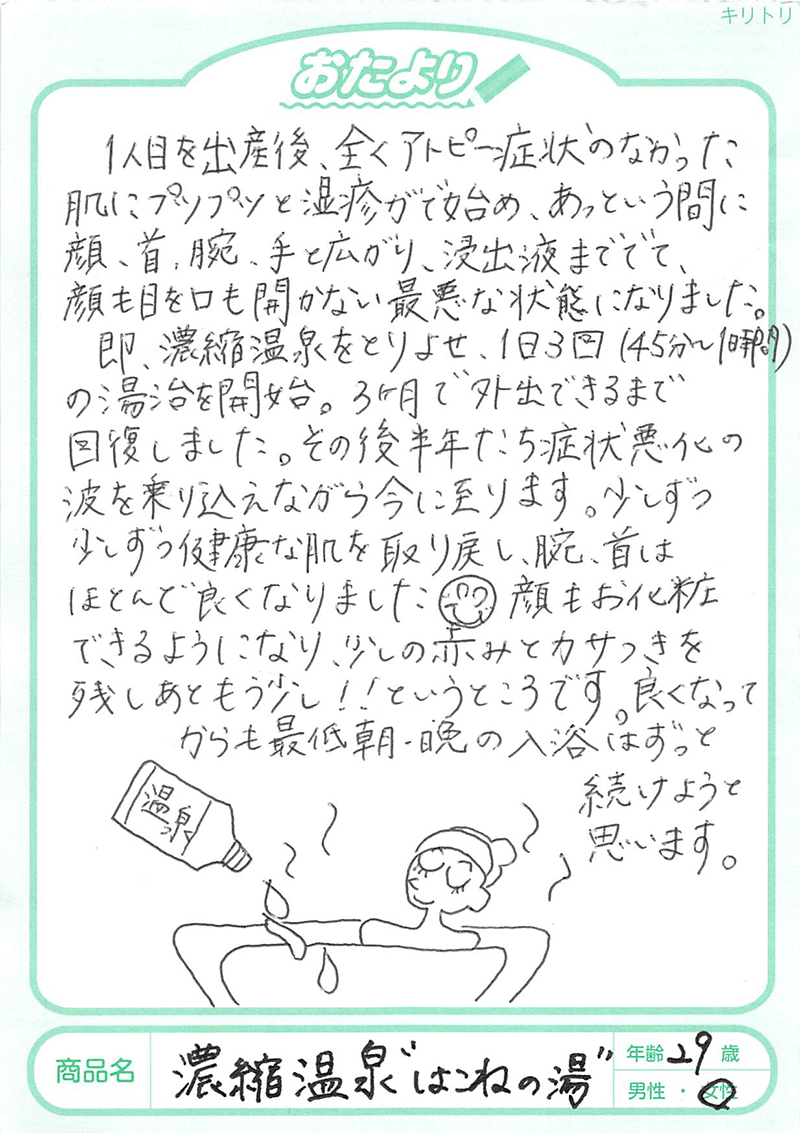 キリトリ
おたより
1人目を出産後、全くアトピー症状のなかった
肌にプツプツと湿疹がで始め、あっという間に
顔、首、腕、手と広がり、浸出液まででて、
顔も目を口も開かない最悪な状態になりました。
即、濃縮温泉をとりよせ、1日3回(45分〜1時間)
の湯治を開始。3ヶ月で外出できるまで
回復しました。その後半年たち症状悪化の
波を乗り込えながら今に至ります。少しずつ
少しずつ健康な肌を取り戻し、腕、首は
ほとんど良くなりました 顔もお化粧
できるようになり、少しの赤みとカサつきを
残しあともう少し!!というところです。良くなって
からも最低朝・晩の入浴はずっと
続けようと
思います。
温泉
商品名 濃縮温泉"はこねの湯"
年齢 29 歳
男性 ・ 女性